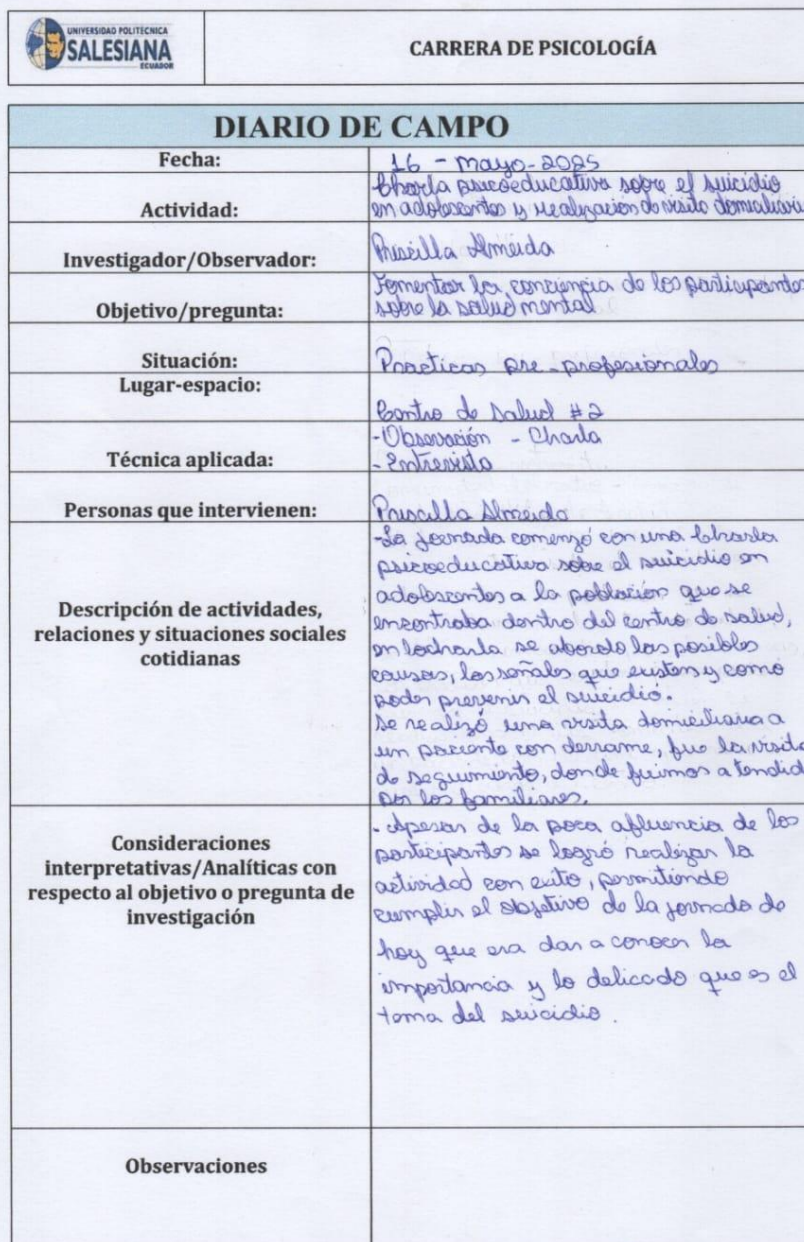 UNIVERSIDAD POLITÉCNICA
SALESIANA
ECUADOR
CARRERA DE PSICOLOGÍA
DIARIO DE CAMPO
Fecha:
16 - mayo - 2025
Actividad:
Charla psicoeducativa sobre el suicidio
en adolescentes y realización de visita domiciliaria
Investigador/Observador:
Priscilla Almeida
Objetivo/pregunta:
Fomentar la conciencia de los participantes
sobre la salud mental
Situación:
Practicas pre-profesionales
Lugar-espacio:
Centro de Salud #2
Técnica aplicada:
-Observación - Charla
- Entrevista
Personas que intervienen:
Priscilla Almeida
Descripción de actividades,
relaciones y situaciones sociales
cotidianas
-La jornada comenzó con una Charla
psicoeducativa sobre el suicidio en
adolescentes a la población que se
encontraba dentro del centro de salud,
en la charla se abordo las posibles
causas, las señales que existen y como
poder prevenir el suicidio.
Se realizó una visita domiciliaria a
un paciente con derrame, fue la visita
de seguimiento, donde fuimos atendid
por los familiares.
Consideraciones
interpretativas/Analíticas con
respecto al objetivo o pregunta de
investigación
- Apesar de la poca afluencia de los
participantes se logró realizar la
actividad con exito, permitiendo
cumplir el objetivo de la jornada de
hoy que era dar a conocer la
importancia y lo delicado que es el
tema del suicidio.
Observaciones